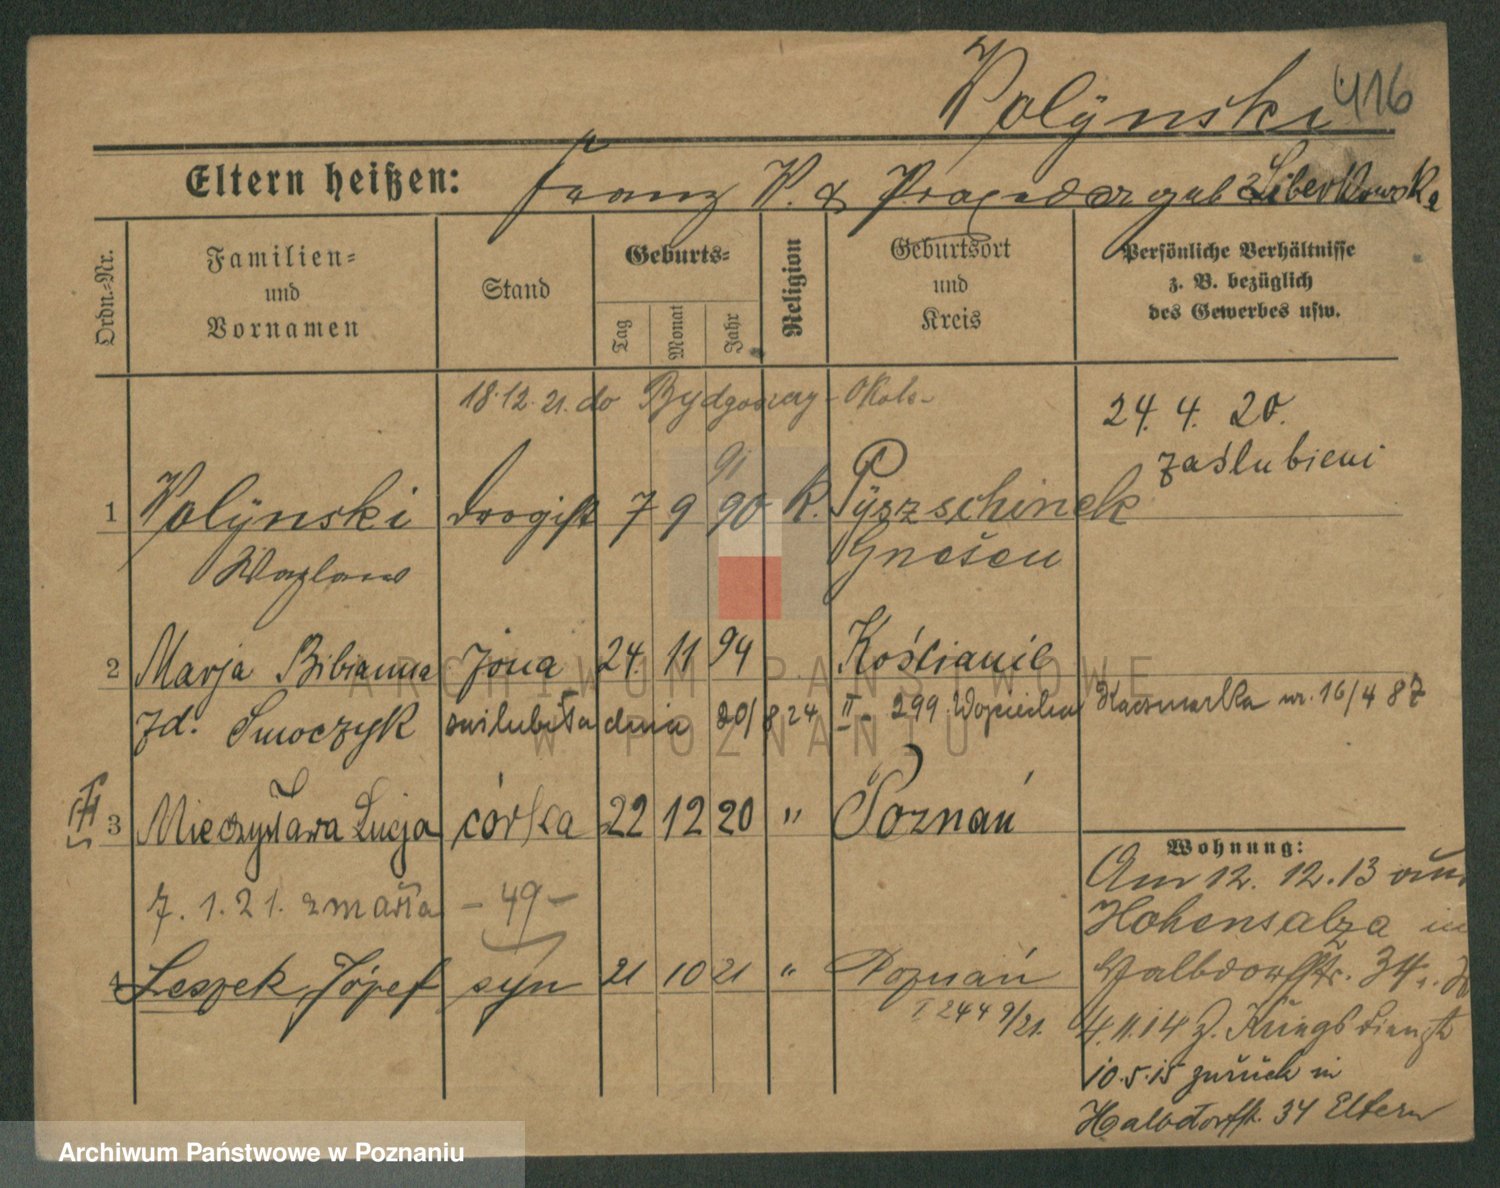 Wolÿnski 416
Eltern heißen:
Franz W. & geb Liberkowska
Ordn.-Nr.
Familien-
und
Vornamen
Stand
Geburts-
Tag
Monat
Jahr
Religion
Geburtsort
und
Kreis
Persönliche Verhältnisse
z. B. bezüglich
des Gewerbes usw.
18.12.21. do Bydgoszczy - Okole -
24. 4. 20.
zaślubieni
91
1 Wolÿnski Drogist 7 9 90 K. Pÿszschinek
Wazlaw Gnesen
2 Marja Bibianna żona 24. 11 94 Kościanie
zd. Smoczyk zaślubiła dnia 20/8 24 II - 299 Wojciecha Kaczmarka nr. 16/4 87
3 Mieczysława Łucja córka 22 12 20 " Poznań
7. 1. 21. zmarła - 49 -
4 Leszek, Józef syn 21 10 21 " Poznań
I 244 9/21.
Wohnung:
Am 12. 12. 13 aus
Hohensalza in
Halbdorfstr. 34
4. 11. 14 z. Kriegsdienst
10. 5. 15 zurück in
Halbdorfst. 34 Eltern
ARCHIWUM PAŃSTWOWE
W POZNANIU
Archiwum Państwowe w Poznaniu